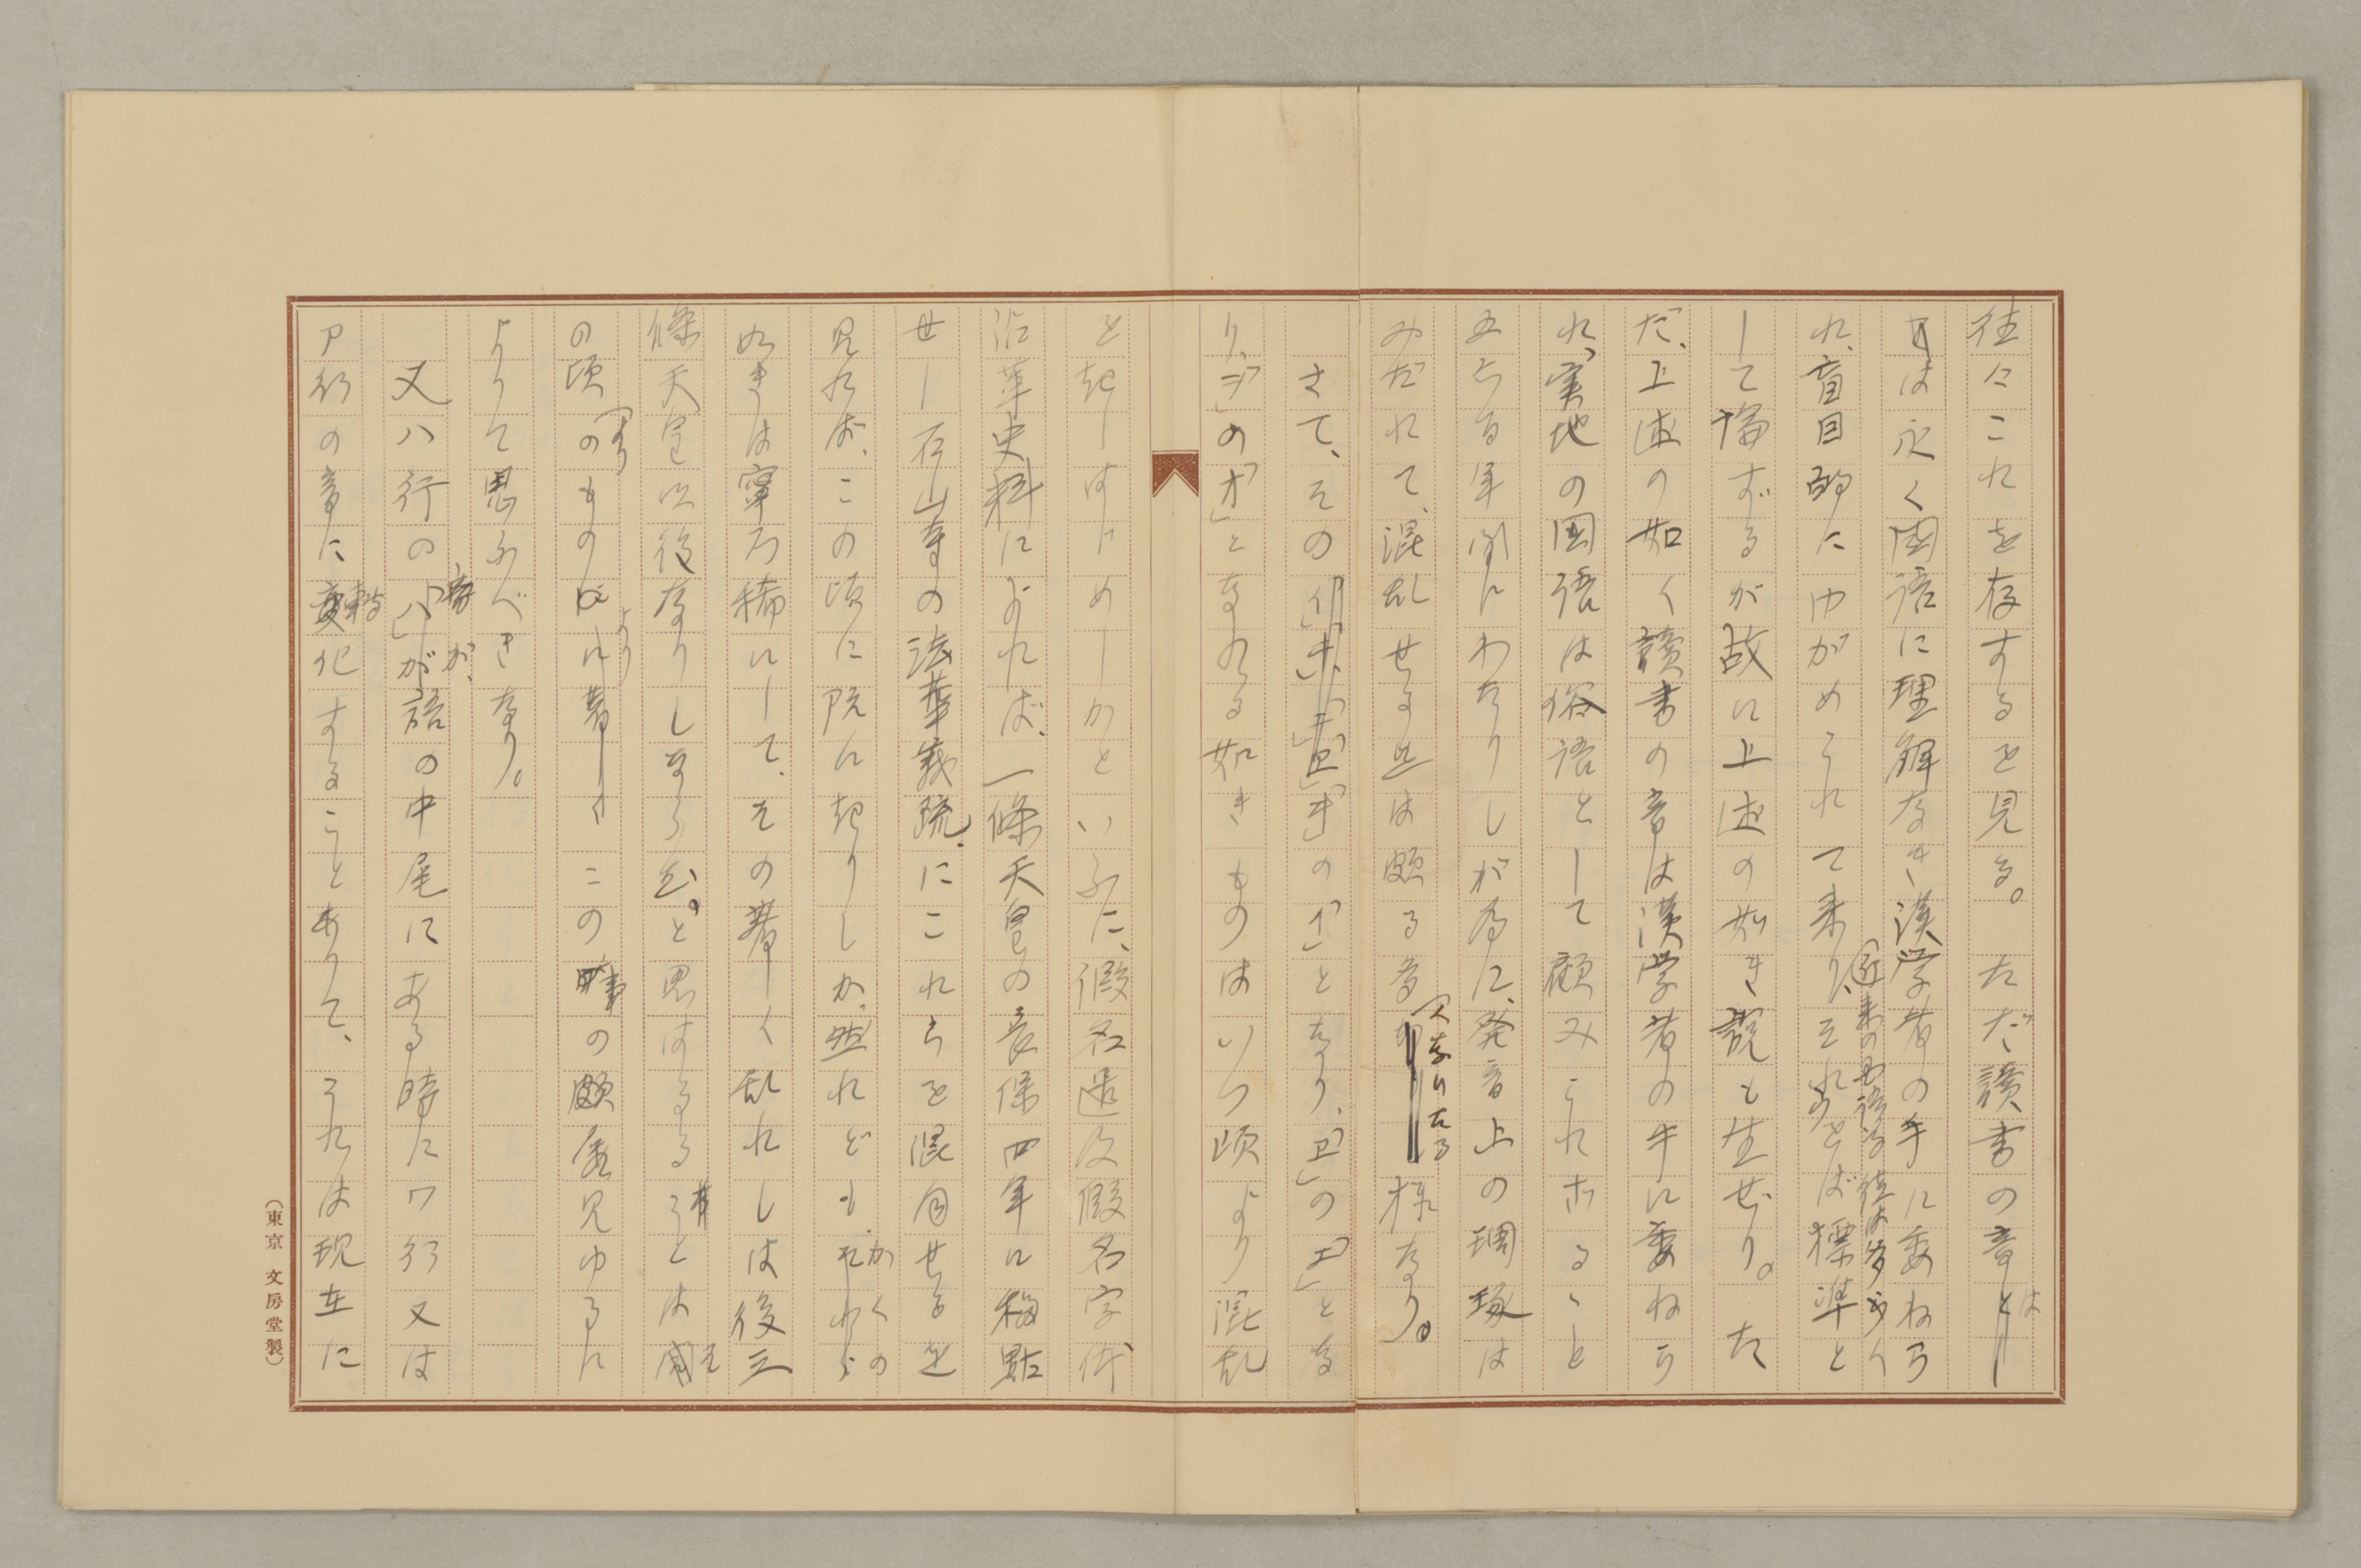 往々これを存するを見る。ただ讀書の音は
は永く國語に理解なき漢学者の手に委ねら
れ、盲目的にゆがめられて来り、それらをば標準と
近来の
して論ずるが故に上述の如き説も生ぜり。た
だ、上述の如く讀書の音は漢学者の手に委ねら
れ、実地の国語は俗語として顧みられざること
五六百年間にわたりしが為に、発音上の調琢は
みだれて、混乱せる点は頗る多
大なりたる
様なり。
さて、その「ヰ」の「イ」となり、「ヱ」の「エ」とな
り、「ヲ」の「オ」となれる如きものはいつ頃より混乱
を起しはじめしかといふに、假名遣及假名字体
沿革史料によれば、一條天皇の長保四年に移點
せし石山寺の法華義疏にこれらを混同せるを
見れば、この頃に既に起りしか。然れども、かくの
如きは寧ろ稀にして、その著しく乱れしは後三
條天皇以後なりしならむ。と思はるる
の頃のものより
に著しくこの事の頗多く見ゆるに
よりて思ふべきなり。
又ハ行の音が、語の中尾にある時にワ行又は
ア行の音に変轉
化することありて、これは現在た
(東京 文房堂製)